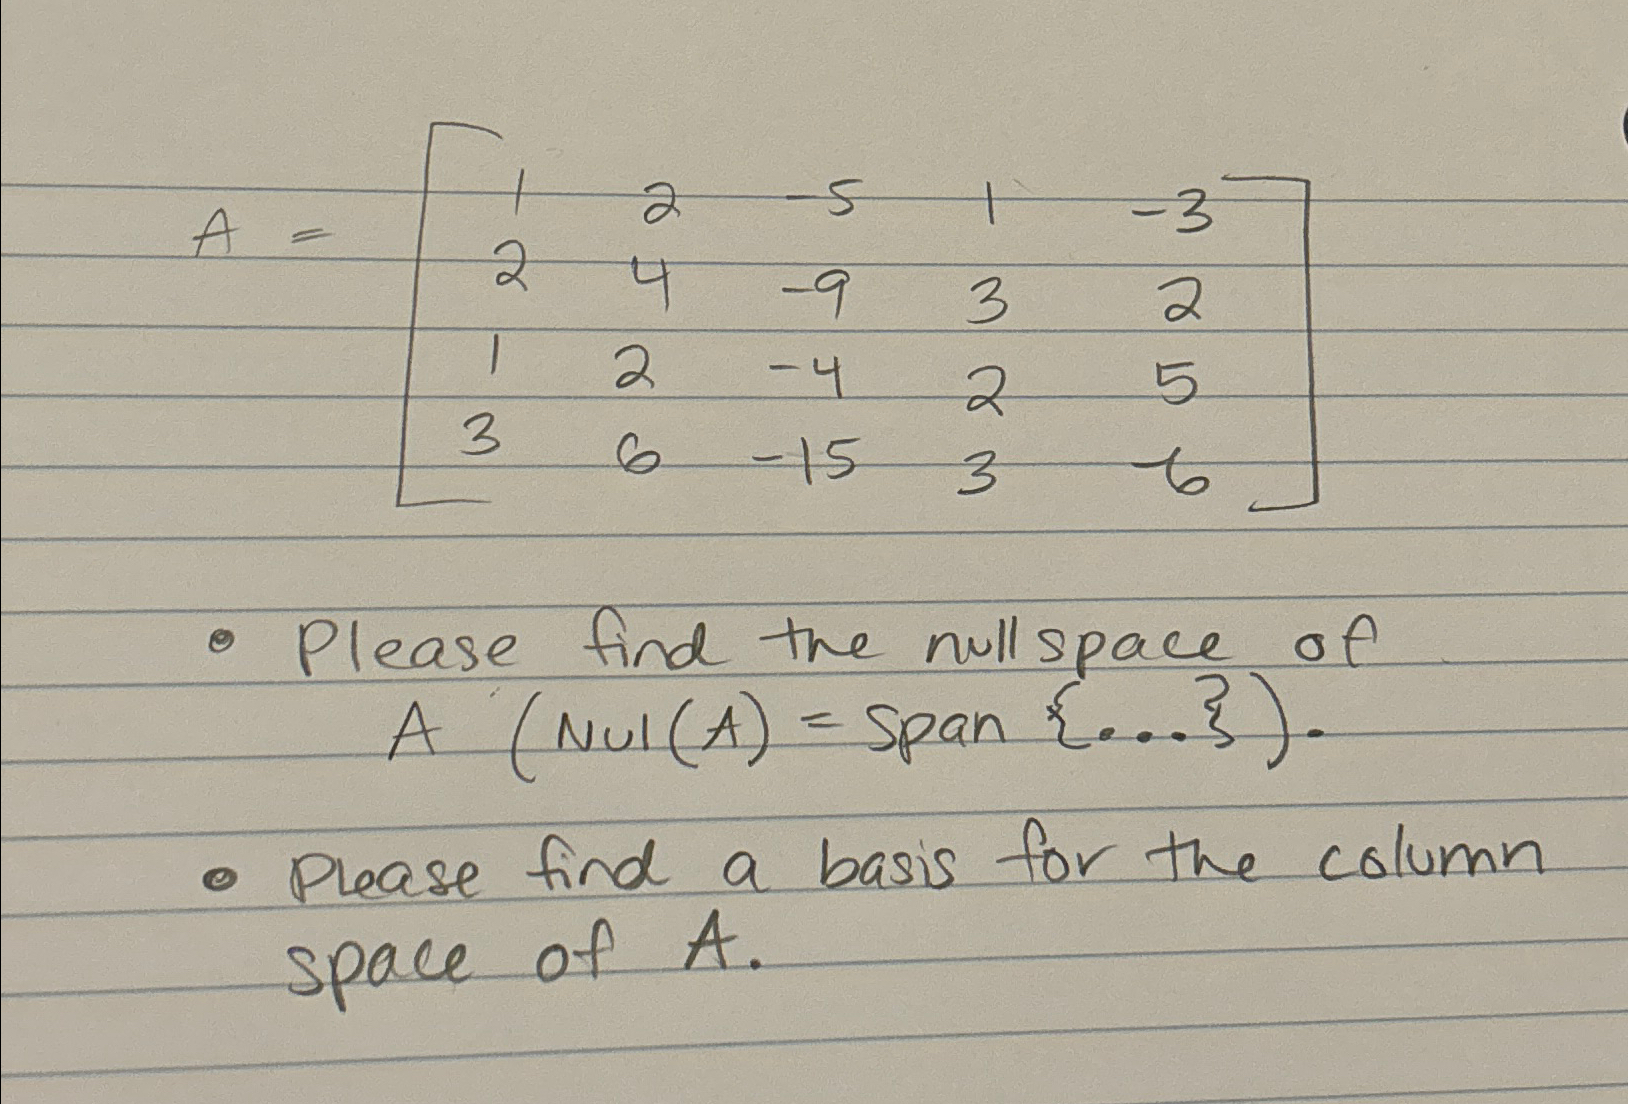 A = [ 1 2 -5 1 -3
2 4 -9 3 2
1 2 -4 2 5
3 6 -15 3 -6 ]
• Please find the null space of
A (Nul(A) = Span {....}).
• Please find a basis for the column
space of A.